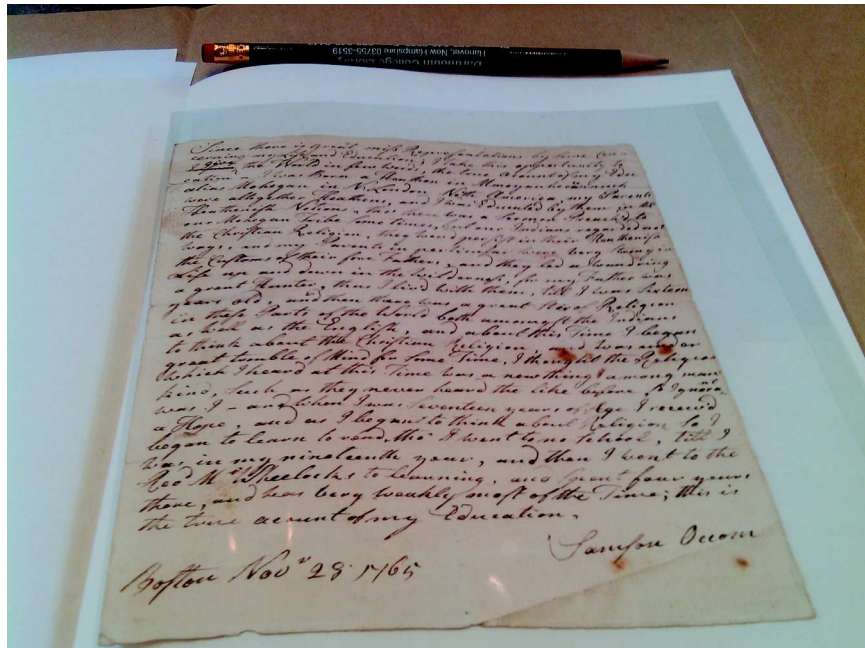 Dartmouth College Library
Hanover, New Hampshire 03755-3519
Since there is great miss Representations by some Con-
cerning my Life and Education; I take this opportunity to
give the World in few words, the true Account of my Edu-
cation — I was Born a Heathen in Mmoyanheeunnuck
alias Mohegan in N. London North America, my Parents
were altogether Heathens, and I was Educated by them in their
Heathenish Notions, tho' there was a Sermon Preach'd to
our Mohegan Tribe some times, but our Indians regarded not
the Christian Religion, they would persist in their Heathenish
ways, and my Parents in particular were very Strong in
the Customs of their fore Fathers, and they led a wandring
Life up and down in the Wilderness, for my Father was
a great Hunter, thus I liv'd with them, till I was Sixteen
years old, and then there was a great Stir of Religion
in these Parts of the World both amongst the Indians
as well as the English, and about this Time I began
to think about the Christian Religion, and was under
great trouble of Mind for Some Time, I thought the Religion
which I heard at this Time was a new thing among man
kind, Such as they never heard the like before, so Ignorant
was I — and when I was Seventeen years of Age I receiv'd
a Hope, and as I began to think about Religion So I
began to learn to read, tho' I went to no School, till I
was in my nineteenth year, and then I went to the
Revd Mr Wheelocks to Learning, and Spent four years
there, and was very weakly most of the Time; this is
the true account of my Education.
Samson Occom
Boston Novr 28 1765